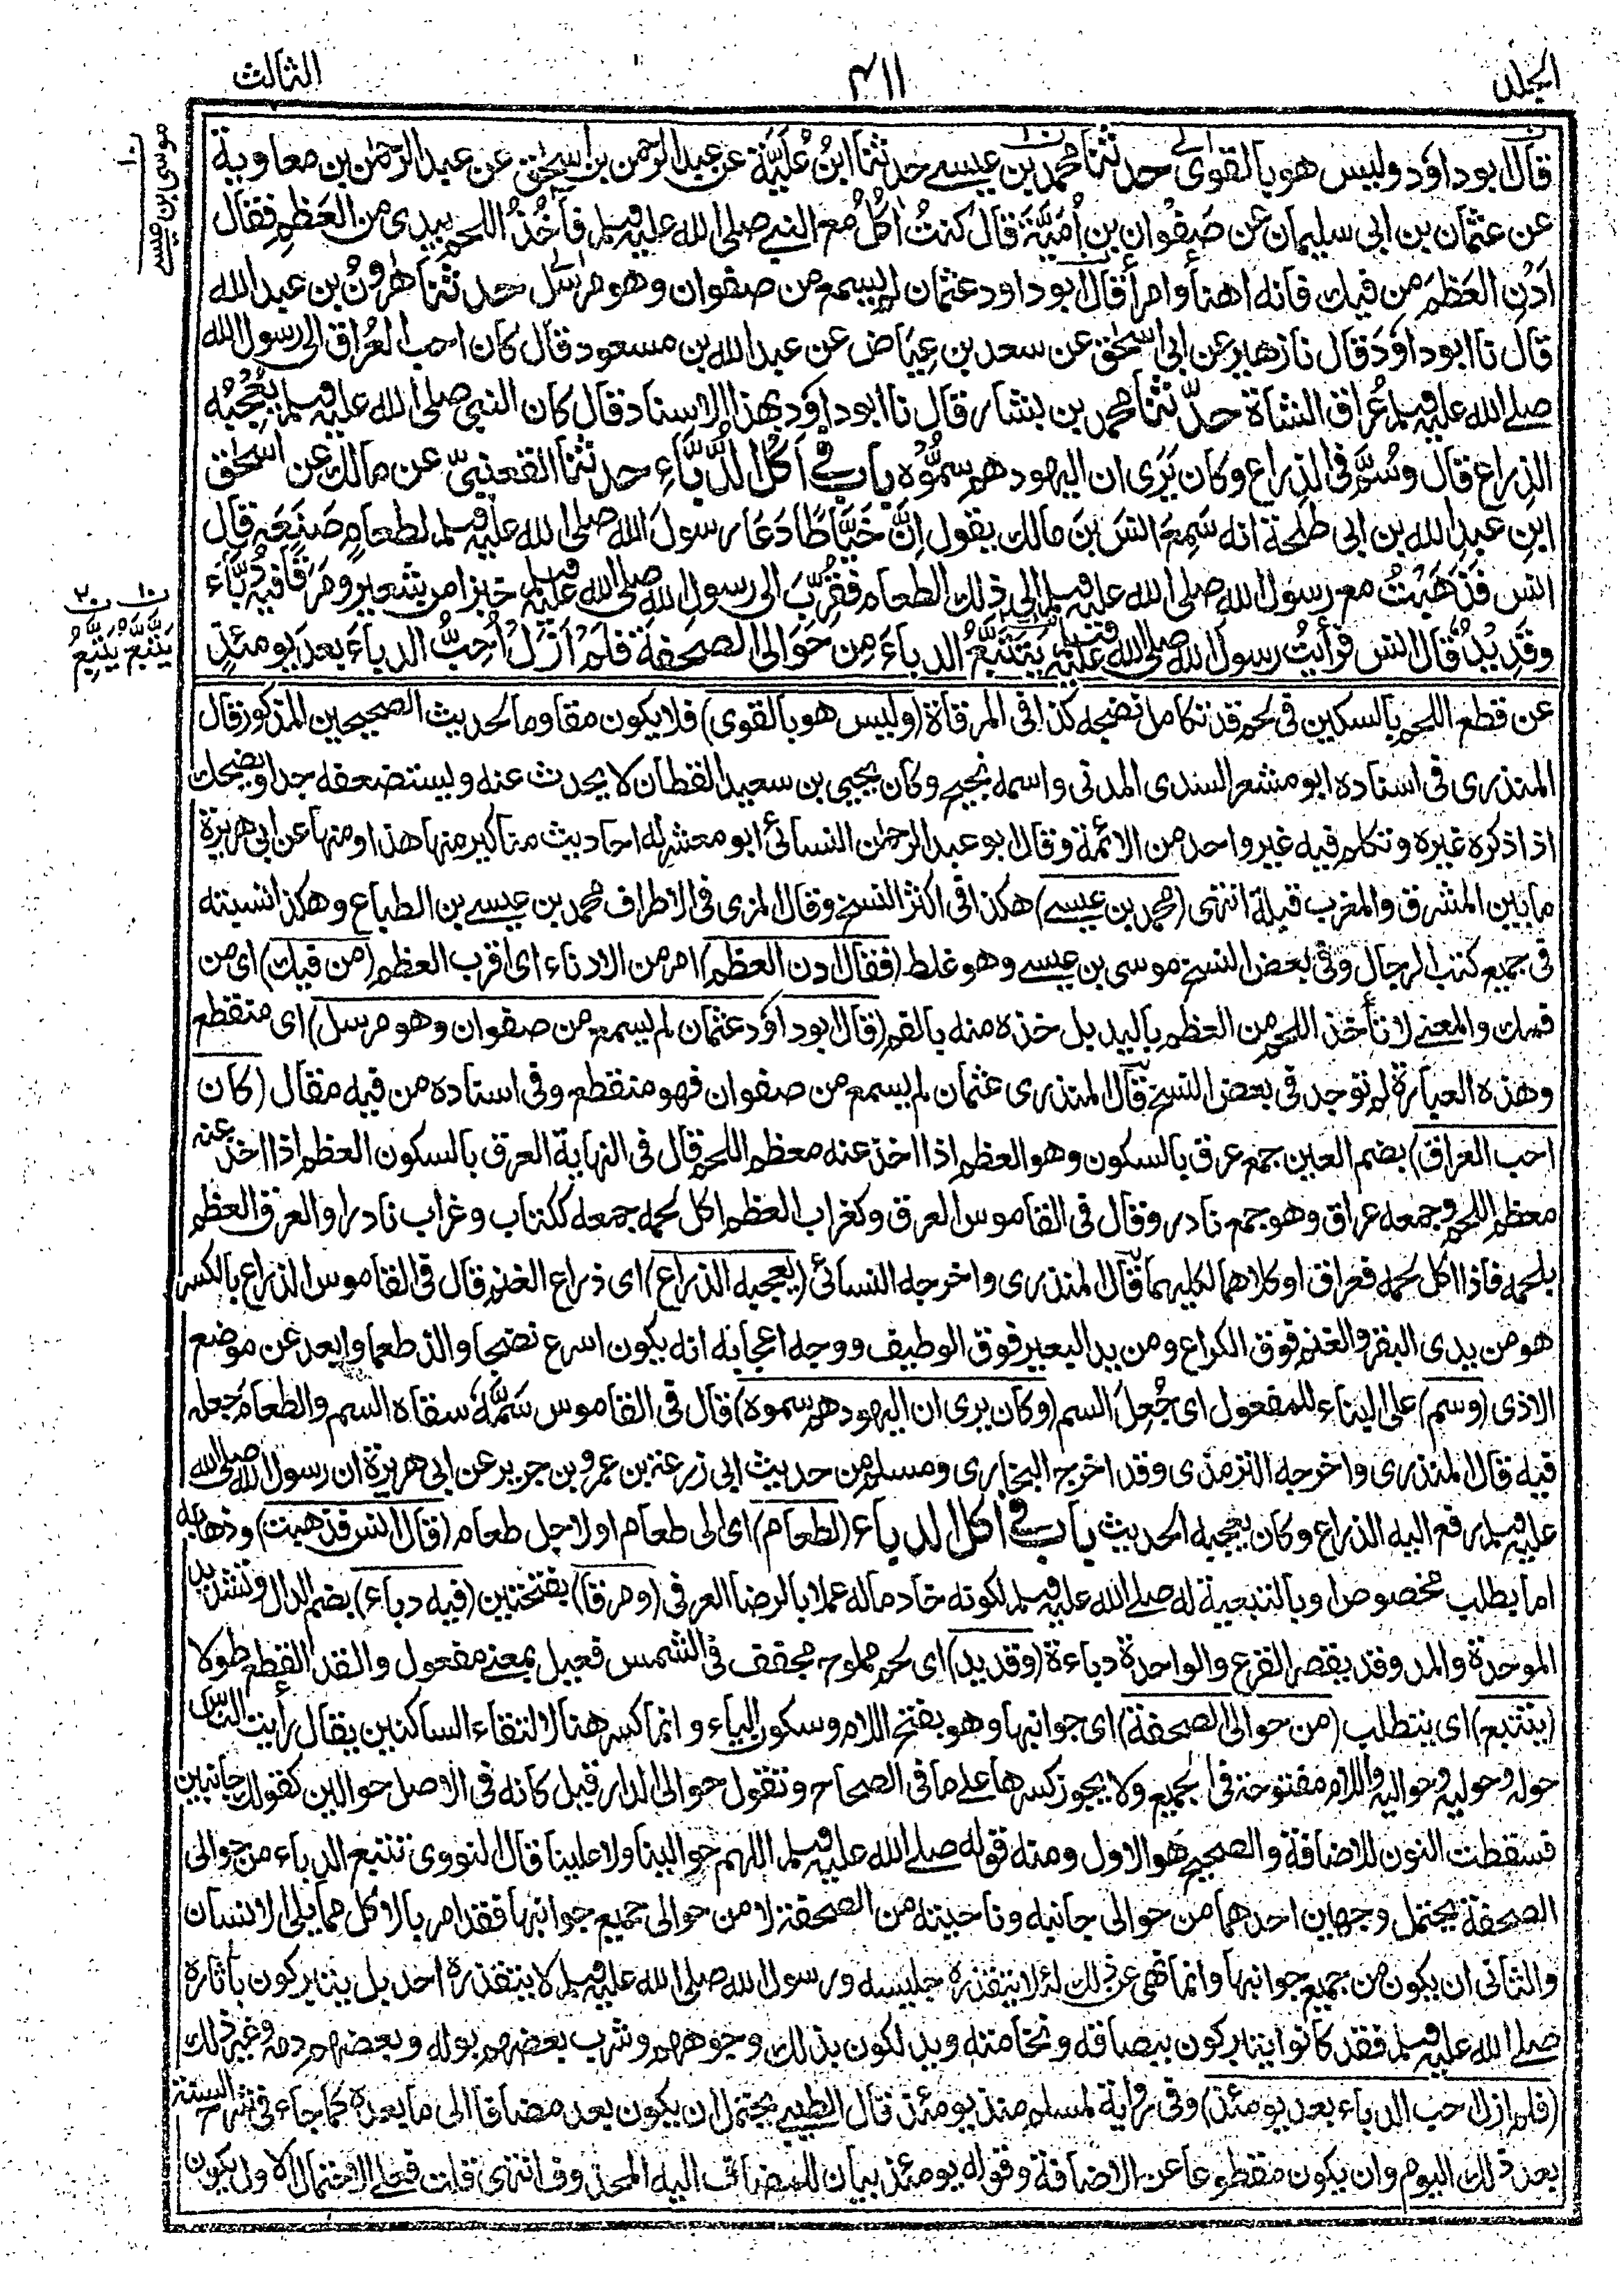 الجلد
٤١١
الثالث
قال ابوداود وليس هو بالقوى حدثنا محمد بن عيسے حدثنا ابنُ عُليَّة عن عبد الرحمن بن اسحٰق عن عبد الرحمٰن بن معاوية
عن عثمان بن ابى سليمان عن صَفوان بن اُمَيَّة قال كنتُ اٰكُلُ مع النبے صلى الله عليه وسلم فآخُذُ اللحم بيدى من العَظم فقال
اَدْنِ العَظمَ من فيك فانه اهنأ وامرأ قال ابوداود عثمان لم يسمع من صفوان وهو مرسَل حدثنا هٰرونُ بن عبد الله
قال نا ابوداؤد قال نا زهير عن ابى اسحٰق عن سعد بن عِيَاض عن عبد الله بن مسعود قال كان احب العُراق الى رسول الله
صلے الله عليه وسلم عُراق الشاة حدّثنا محمد بن بشار قال نا ابوداؤد بهذا الاسناد قال كان النبي صلى الله عليه وسلم يُعْجِبُه
الذراع قال وسُمَّ فى الذراع وكان يَرَى ان اليهود هم سمُّوْه باب فے اَكل الدُّبَّاءِ حدثنا القعنبىّ عن مالك عن اسحٰق
ابنِ عبدِ الله بن ابى طَلحة انه سَمِعَ انسَ بنَ مالك يقول اِنَّ خَيَّاطًا دَعَا رسولَ الله صلى الله عليه وسلم لطعامٍ صَنَعَه قال
انس فذَهَبْتُ مع رسول الله صلى الله عليه وسلم الى ذلك الطعام فقُرِّبَ الى رسول الله صلى الله عليه وسلم خبزا من شعير ومَرَقًا فيه دُبَّاء
وقَدِيْدٌ قال انس فرأيتُ رسول الله صلى الله عليه وسلم يَتَتَبَّعُ الدباءَ مِن حَوَالَى الصحفة فلم اَزَلْ اُحِبُّ الدباءَ بعدَ يومئذٍ
عن قطع اللحم بالسكين فى لحم قد تكامل نضجه كذا فى المرقاة (وليس هو بالقوى) فلا يكون مقاوما لحديث الصحيحين المذكور قال
المنذرى فى اسناده ابو معشر السندى المدنى واسمه نجيح وكان يحيى بن سعيد القطان لا يحدث عنه ويستضعفه جدا ويضحك
اذا ذكره غيره وتكلم فيه غير واحد من الائمة وقال ابو عبد الرحمٰن النسائى ابو معشر له احاديث مناكير منها هذا ومنها عن ابى هريرة
ما بين المشرق والمغرب قبلة انتهى (محمد بن عيسے) هكذا فى اكثر النسخ وقال المزى فى الاطراف محمد بن عيسے بن الطباع وهكذا نسبته
فى جميع كتب الرجال وفى بعض النسخ موسى بن عيسے وهو غلط (فقال ادن العظم) امر من الادناء اى اقرب العظم (من فيك) اى من
فمك والمعنے لا تأخذ اللحم من العظم باليد بل خذه منه بالفم (قال ابوداؤد عثمان لم يسمع من صفوان وهو مرسل) اى منقطع
وهذه العبارة لم توجد فى بعض النسخ قال المنذرى عثمان لم يسمع من صفوان فهو منقطع وفى اسناده من فيه مقال (كان
احب العراق) بضم العين جمع عرق بالسكون وهو العظم اذا اخذ عنه معظم اللحم قال فى النهاية العرق بالسكون العظم اذا اخذ عنه
معظم اللحم وجمعه عراق وهو جمع نادر وقال فى القاموس العرق وكغراب العظم اكل لحمه جمعه ككتاب وغراب نادر او العرق العظم
بلحمه فاذا اكل لحمه فعراق او كلاهما لكليهما قال المنذرى واخرجه النسائى (يعجبه الذراع) اى ذراع الغنم قال فى القاموس الذراع بالكسر
هو من يدى البقر والغنم فوق الكراع ومن يد البعير فوق الوظيف ووجه اعجابه انه يكون اسرع نضجا والذ طعما وابعد عن موضع
الاذى (وسم) على البناء للمفعول اى جُعِلَ السم (وكان يرى ان اليهود هم سموه) قال فى القاموس سَمَّهٗ سقاه السم والطعام جعله
فيه قال المنذرى واخرجه الترمذى وقد اخرج البخارى ومسلم من حديث ابى زرعة بن عمرو بن جرير عن ابى هريرة ان رسول الله صلى الله
عليه وسلم رفع اليه الذراع وكان يعجبه الحديث باب فے اكل الدباء (لطعام) اى الى طعام او لاجل طعام (قال انس فذهبت) وذهابه
اما بطلب مخصوص او بالتبعية له صلے الله عليه وسلم لكونه خادما له عملا بالرضا العرفى (ومرقا) بفتحتين (فيه دباء) بضم الدال وتشديد
الموحدة والمد وقد يقصر القرع والواحدة دباءة (وقديد) اى لحم مملوح مجفف فى الشمس فعيل بمعنے مفعول والقد القطع طولا
(يتتبع) اى يتطلب (من حوالى الصحفة) اى جوانبها وهو بفتح اللام وسكون الياء وانما كسر هنا لالتقاء الساكنين يقال رأيت الناس
حوله وحوليه وحواليه واللام مفتوحة فى الجميع ولا يجوز كسرها على ما فى الصحاح وتقول حوالى الدار قيل كانه فى الاصل حوالين كقولك جانبين
فسقطت النون للاضافة والصحيح هو الاول ومنه قوله صلے الله عليه وسلم اللهم حوالينا ولا علينا قال النووى تتبع الدباء من حوالى
الصحفة يحتمل وجهين احدهما من حوالى جانبه وناحيته من الصحفة لا من حوالى جميع جوانبها فقد امر بالاكل مما يلى الانسان
والثانى ان يكون من جميع جوانبها وانما نهى عن ذلك لئلا يتقذره جليسه ورسول الله صلى الله عليه وسلم لا يتقذره احد بل يتبركون بآثاره
صلے الله عليه وسلم فقد كانوا يتبركون ببصاقه ونخامته ويدلكون بذلك وجوههم وشرب بعضهم بوله وبعضهم دمه وغير ذلك
(فلم ازل احب الدباء بعد يومئذ) وفى رواية لمسلم منذ يومئذ قال الطيبے يحتمل ان يكون بعد مضافا الى ما بعده كما جاء فى شرح السنة
بعد ذلك اليوم وان يكون مقطوعا عن الاضافة وقوله يومئذ بيان للمضاف اليه المحذوف انتهى قلت فعلى الاحتمال الاول يكون
ن
موسى ابن عيسے
ن ن
يَتَّبِعُ يَتْبَعُ